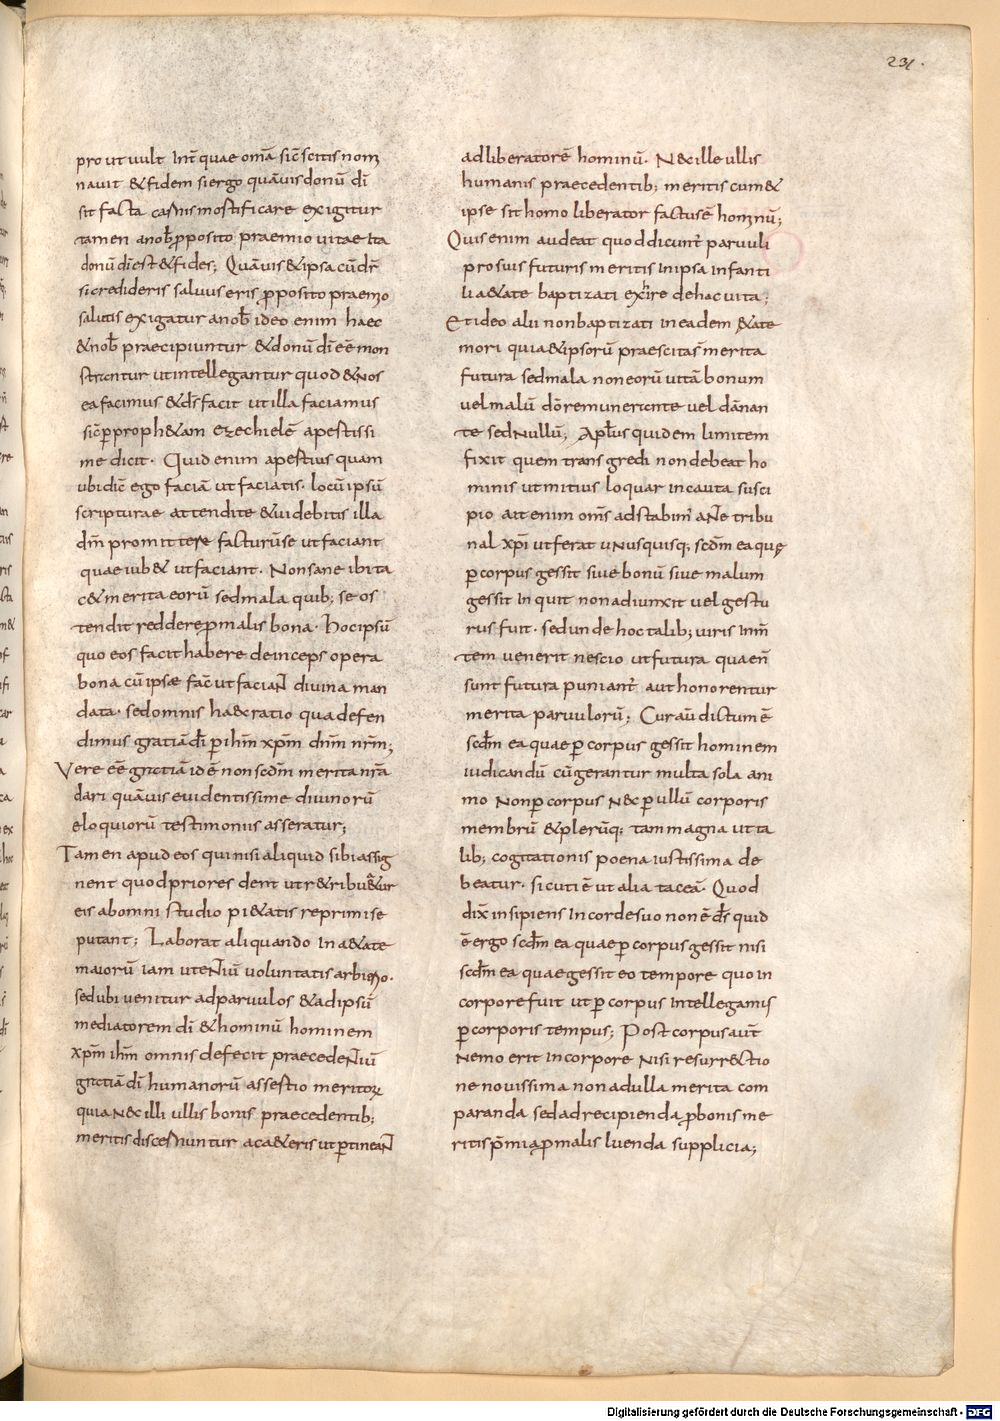 231.
pro ut vult Int̄ quae omā sic̄ scitis nom
navit & fidem si ergo quāvis donū dī
sit facta carnis mortificare exigitur
tamen a nob̄ proposito praemio vitae Ita
donū dī est & fides; Quāvis & ipsa cū dr̄
si credideris salvus eris proposito praemio
salutis exigatur a nob̄ ideo enim haec
& nob̄ praecipiuntur & donū dī eē mon
strantur ut intellegantur quod & Nos
ea facimus & ds̄ facit ut illa faciamus
sic̄ per proph&am ezechielē apertissi
me dicit. Quid enim apertius quam
ubi dic̄ ego faciā ut faciatis. locū ipsū
scripturae attendite & videbitis illa
dm̄ promittere facturū se ut faciant
quae iub& ut faciant. Non sane ibi ta
c& merita eorū sed mala quib; se os
tendit reddere pro malis bona. Hoc ipsū
quo eos facit habere deinceps opera
bona cū ipse fac̄ ut faciant divina man
data. sed omnis haec ratio qua defen
dimus gratiā dī per ihm̄ xpm̄ dnm̄ nrm̄;
Vere eē gratiā id ē non scdm̄ merita nrā
dari quāvis evidentissime divinorū
eloquiorū testimoniis asseratur;
Tamen apud eos qui nisi aliquid sibi assig
nent quod priores dent ut r&ribuat̄ur
eis ab omni studio pi&atis reprimi se
putant; Laborat aliquando In a&ate
maiorū iam utentiū voluntatis arbitrio.
sed ubi venitur ad parvulos & ad ipsū
mediatorem dī & hominū hominem
xpm̄ ihm̄ omnis defecit praecedentiū
gratiā dī humanorū assertio meritorum
quia nec illi ullis bonis praecedentib;
meritis discernuntur a c&eris ut pertineant
ad liberatorē hominū. Nec ille ullis
humanis praecedentib; meritis cum &
ipse sit homo liberator factus ē hominū;
Quis enim audeat quod dicunt̄ parvuli
pro suis futuris meritis in ipsa infanti
li a&ate baptizati exire de hac vita;
Et ideo alii non baptizati in eadem &ate
mori quia & ipsorū praescita st̄ merita
futura sed mala non eorū vitā bonam
vel malū dō remunerante vel dānan
te sed Nullū; Apl̄us quidem limitem
fixit quem transgredi non debeat ho
minis ut mitius loquar incauta susci
pio ait enim om̄s adstabim̄ ante tribu
nal xpī ut ferat uNusquisq; scdm̄ ea que
per corpus gessit sive bonū sive malum
gessit inquit non adiunxit vel gestu
rus fuit. sed unde hoc talib; viris in m̄
tem venerit nescio ut futura quae n̄
sunt futura puniant̄ aut honorentur
merita parvulorū; Cur aū dictum ē
scdm̄ ea quae per corpus gessit hominem
iudicandū cū gerantur multa sola ani
mo Non per corpus Nec per ullū corporis
membrū & plerūq; tam magna ut ta
lib; cogitationis poena iustissima de
beatur. sicuti ē ut alia taceā. Quod
dix̄ insipiens in corde suo non ē ds̄ quid
ē ergo scdm̄ ea quae per corpus gessit nisi
scdm̄ ea quae gessit eo tempore quo in
corpore fuit ut per corpus intellegamus
per corporis tempus; Post corpus aut̄
Nemo erit in corpore Nisi resurrectio
ne novissima non ad ulla merita com
paranda sed ad recipienda pro bonis me
ritis prēmia pro malis luenda supplicia;
Digitalisierung gefördert durch die Deutsche Forschungsgemeinschaft - DFG